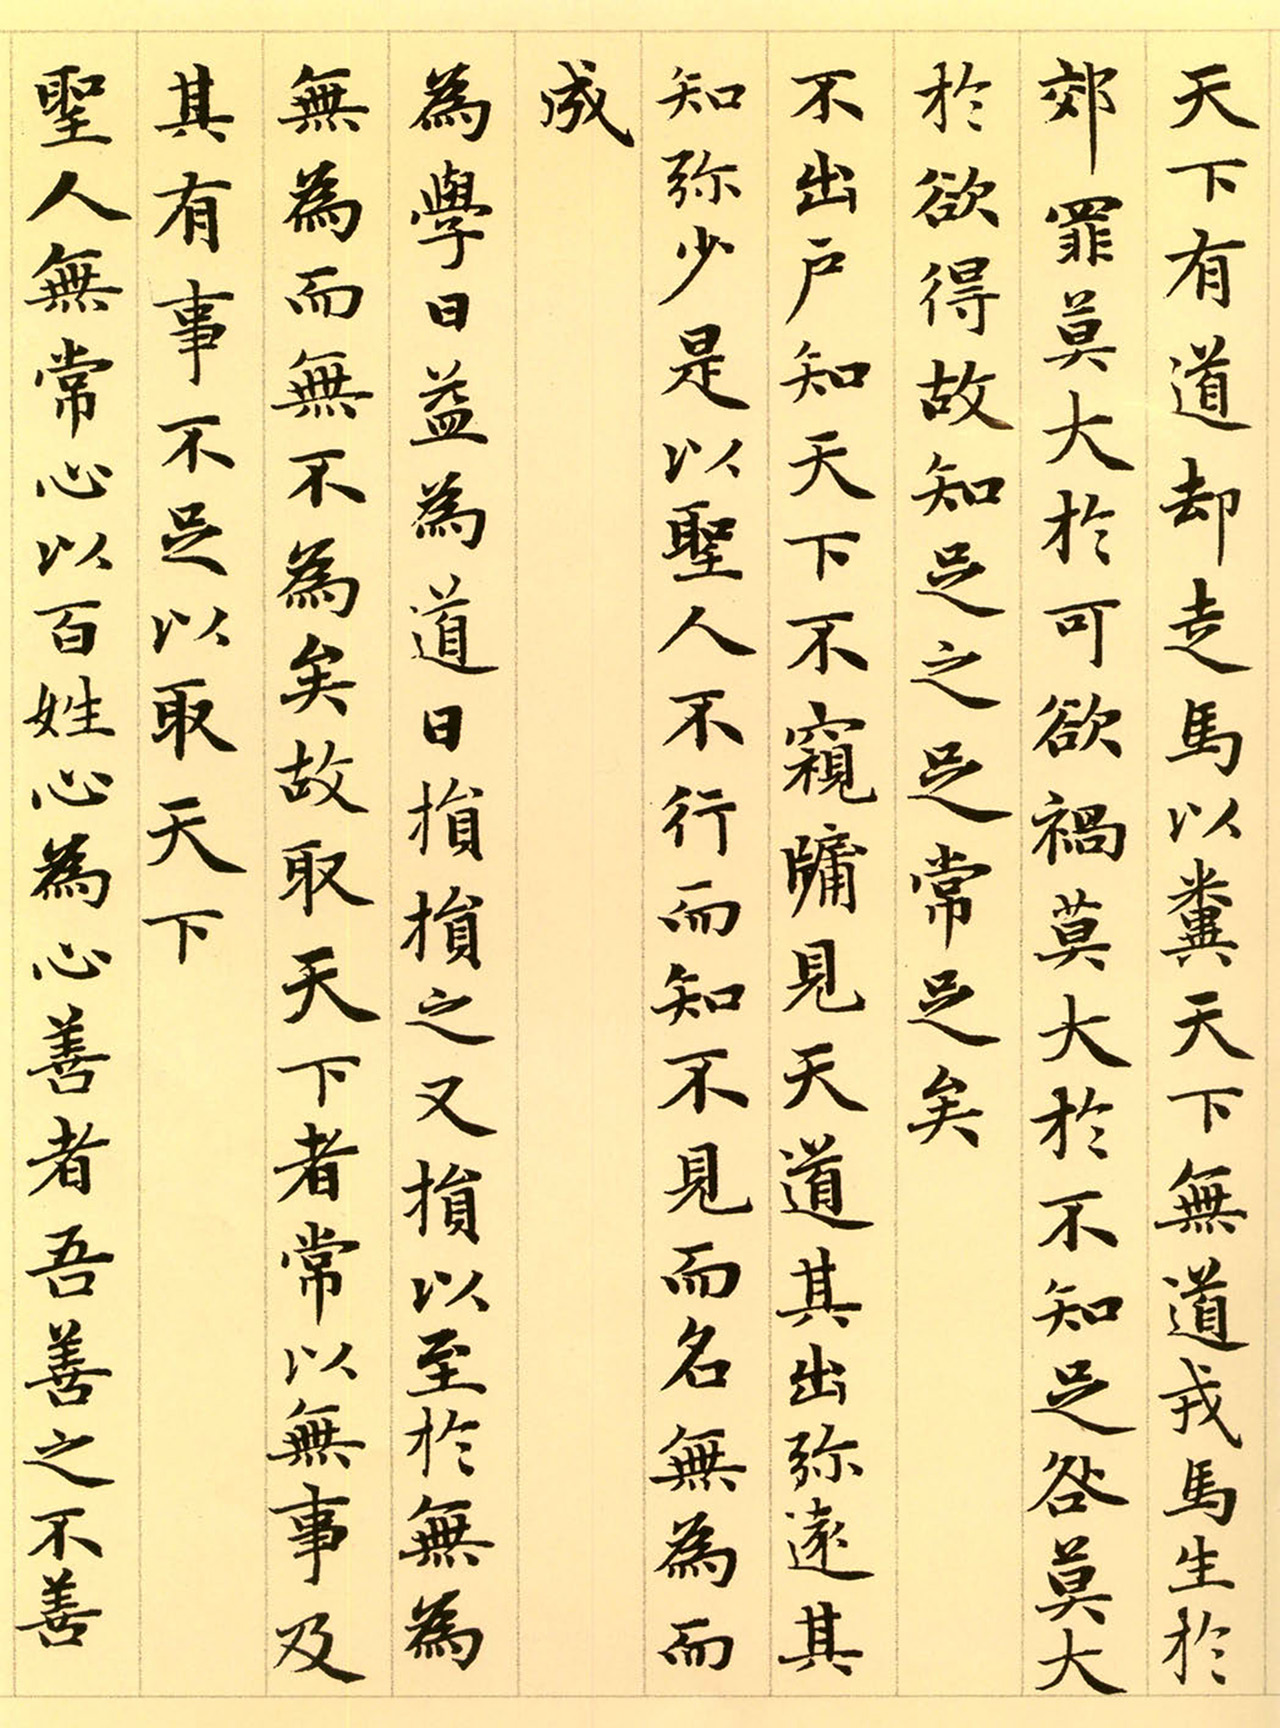 天下有道却走馬以糞天下無道戎馬生於
郊罪莫大於可欲禍莫大於不知足咎莫大
於欲得故知足之足常足矣
不出戶知天下不窺牖見天道其出弥遠其
知弥少是以聖人不行而知不見而名無為而
成
為學日益為道日損損之又損以至於無為
無為而無不為矣故取天下者常以無事及
其有事不足以取天下
聖人無常心以百姓心為心善者吾善之不善